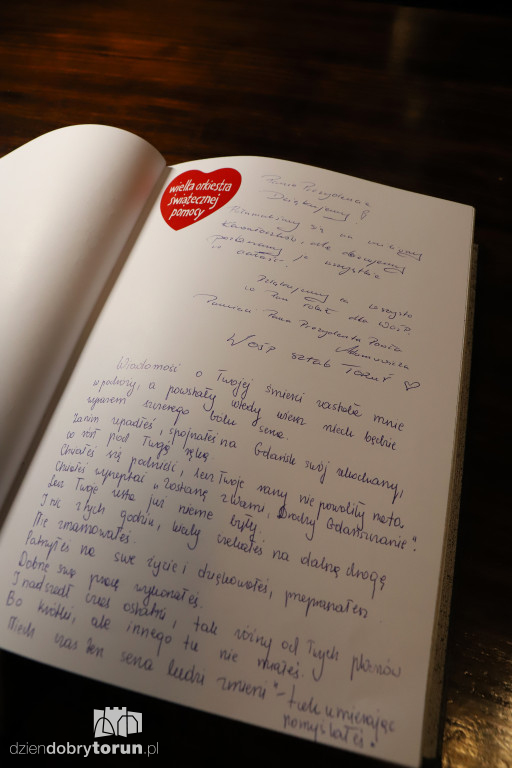 wielka orkiestra
świątecznej
pomocy
Panie Prezydencie
Dziękujemy!
się na
ale
je wszystkie
Dziękujemy za wszystko
co Pan robił dla WOŚP.
Pamięci Pana Prezydenta Pawła
Adamowicza
WOŚP sztab Toruń ♡
Wiadomość o Twojej śmierci zastała mnie
w podróży, a powstały wtedy wiersz niech będzie
wyrazem szczerego bólu serca.
Zanim upadłeś, spojrzałeś na Gdańsk swój ukochany,
co rósł pod Twoją ręką
Chciałeś się podnieść, lecz Twoje rany nie pozwoliły na to.
Chciałeś wyszeptać "Zostanę z Wami, Drodzy Gdańszczanie".
Lecz Twoje usta już nieme były.
I nic z tych godzin, walcząc na dalszą drogę
Nie zmarnowałeś.
Patrzyłeś na swe życie i dziękowałeś, przepraszałeś
Dobrze swą pracę wykonałeś.
I nadszedł czas ostatni, tak różny od Twych planów
Bo krótki, ale innego tu nie miałeś.
Niech czas ten serca ludzi zmieni" - tak umierając
pomyślałeś.
dziendobrytorun.pl